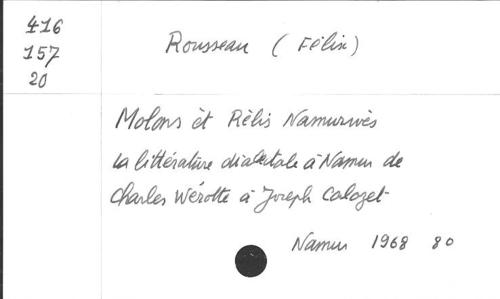 416
157
20
Rousseau (Félix)
Molons èt Rèlis Namurwès
La littérature dialectale à Namur de
Charles Wérotte à Joseph Calozet
Namur 1968 80